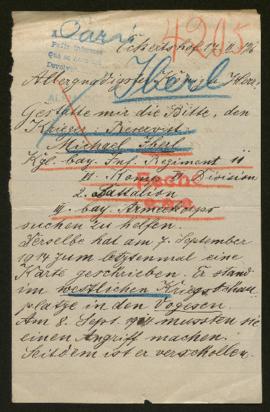 Paris
4205
Iberl
Gestatte mir die Bitte, den
Krieger Reservist
Michael Iberl
Kgl. bay. Inf. Regiment 11
Division
2. Battallion
bay. Armeekorps
suchen zu helfen.
Derselbe hat am 7. September
1914 zum letztenmal eine
Karte geschrieben. Er stand
im westlichen Kriegsschau
platze in den Vogesen.
Am 8. Sept. 1914 mussten sie
einen Angriff machen.
Seitdem ist er verschollen.